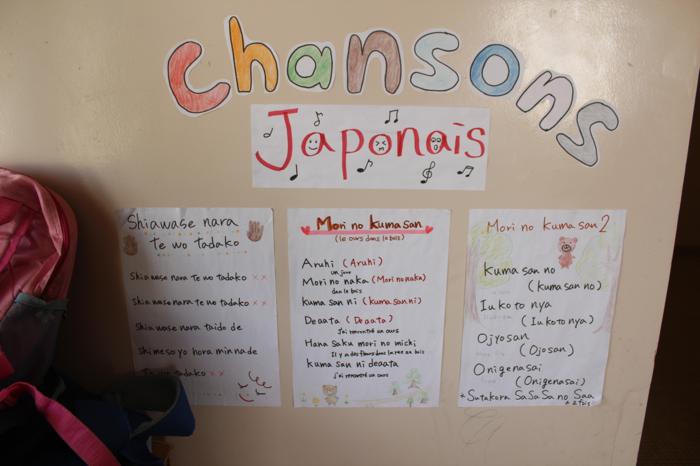 Chansons
Japonais
Shiawase nara
te wo tadako
Shiawase nara te wo tadako ××
Shiawase nara te wo tadako ××
Shiawase nara taido de
Shimeso yo hora minnade
Te wo tadako ××
Mori no kumasan
(le ours dans le bois)
Aruhi (Aruhi)
un jour
Mori no naka (Mori no naka)
dans le bois
kuma san ni (kuma san ni)
Deaata (Deaata)
J'ai rencontré un ours
Hana saku mori no michi
Il y a des fleurs dans la rue au bois
kuma san ni deaata
J'ai rencontré un ours
Mori no kuma san 2
Kuma san no
(kuma san no)
Iukoto nya
(Iukoto nya)
Ojyosan
(Ojosan)
Onigenasai
(Onigenasai)
* Sutakora Sa Sa Sa no Saa
* 2 fois